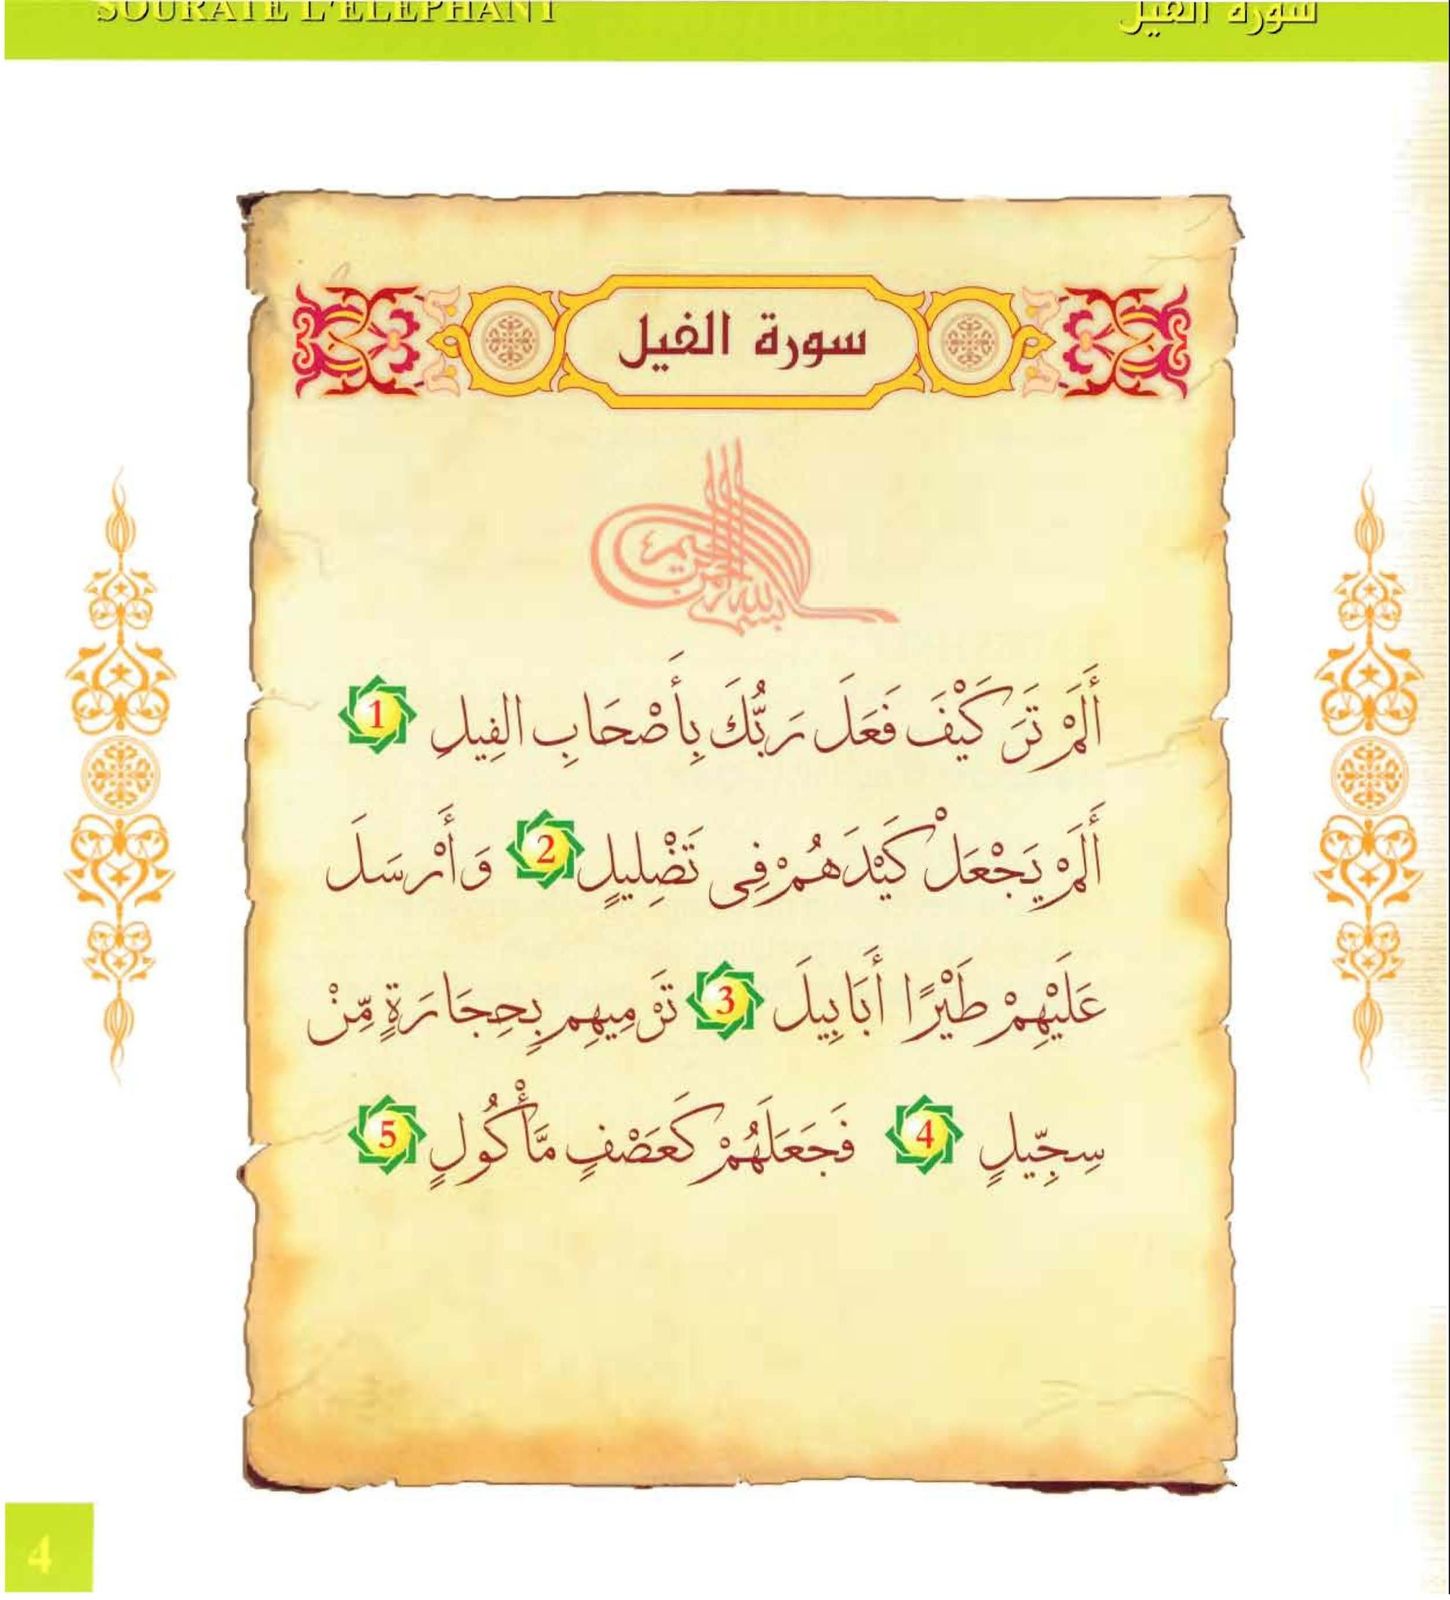 SOURATE L'ELEPHANT
سورة الفيل
سورة الفيل
بسم الله الرحمن الرحيم
أَلَمْ تَرَ كَيْفَ فَعَلَ رَبُّكَ بِأَصْحَابِ الفِيلِ 1
أَلَمْ يَجْعَلْ كَيْدَهُمْ فِى تَضْلِيلٍ 2 وَأَرْسَلَ
عَلَيْهِمْ طَيْرًا أَبَابِيلَ 3 تَرْمِيهِم بِحِجَارَةٍ مِّنْ
سِجِّيلٍ 4 فَجَعَلَهُمْ كَعَصْفٍ مَّأْكُولٍ 5
4